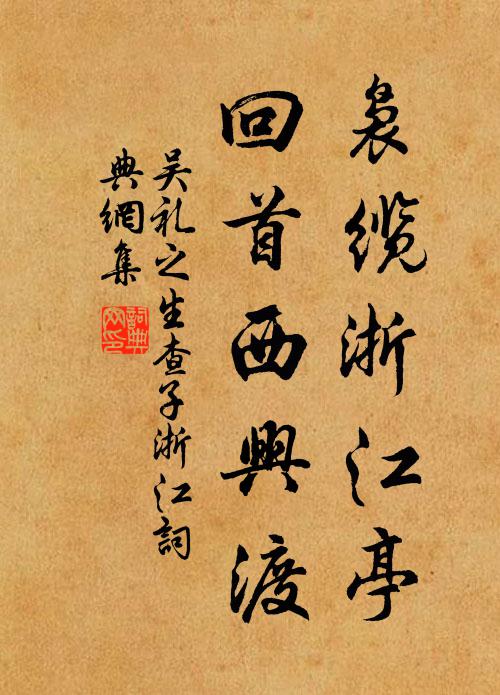 袅缆浙江亭
回首西興渡
吴礼之生查子浙江詞
典網集
詞典
网印